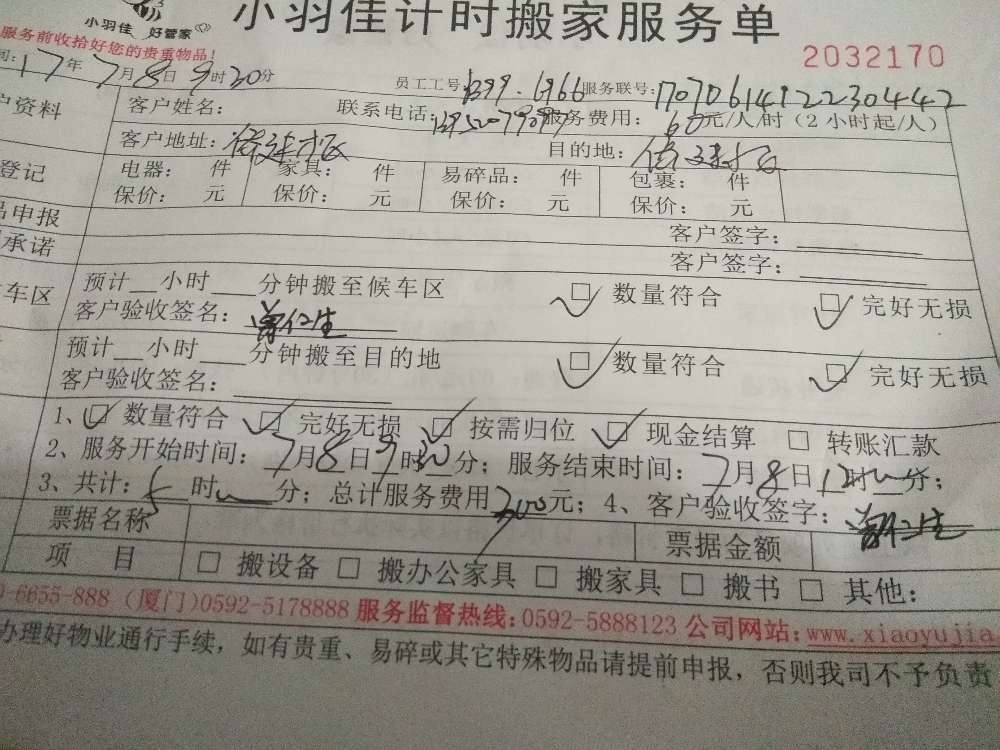 小羽佳计时搬家服务单
小羽佳 好管家
服务前收拾好您的贵重物品!
2032170
间: 17年7月8日9时30分 员工工号: 1399.6966 服务联号: 17070614122230442
户资料 客户姓名: 联系电话: 服务费用: 60元/人/时(2小时起/人)
客户地址: 目的地:
登记 电器: 件 家具: 件 易碎品: 件 包裹: 件
保价: 元 保价: 元 保价: 元 保价: 元
品申报 客户签字:
承诺 客户签字:
车区 预计__小时___分钟搬至候车区 ☑ 数量符合 ☑ 完好无损
客户验收签名: 曾仁生
预计__小时___分钟搬至目的地 ☑ 数量符合 ☑ 完好无损
客户验收签名:
1、☑ 数量符合 ☑ 完好无损 ☑ 按需归位 ☑ 现金结算 □ 转账汇款
2、服务开始时间: 7月8日9时30分; 服务结束时间: 7月8日12时 分;
3、共计: 时 分; 总计服务费用 元; 4、客户验收签字: 曾仁生
票据名称 票据金额
项 目 □ 搬设备 □ 搬办公家具 □ 搬家具 □ 搬书 □ 其他:
0-6655-888 (厦门)0592-5178888 服务监督热线:0592-5888123 公司网站:www.xiaoyujia.
办理好物业通行手续,如有贵重、易碎或其它特殊物品请提前申报,否则我司不予负责